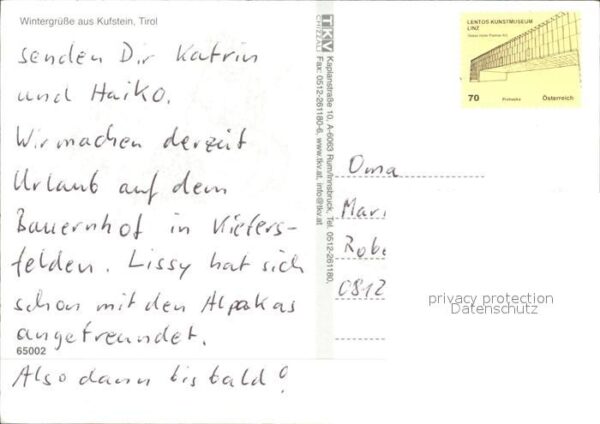 Wintergrüße aus Kufstein, Tirol
senden Dir Katrin
und Haiko.
Wir machen derzeit
Urlaub auf dem
Bauernhof in Kiefers-
felden. Lissy hat sich
schon mit den Alpakas
angefreundet.
65002
Also dann bis bald!
TKV
Kaplanstraße 10, A-6063 Rum/Innsbruck, Tel. 0512-261180,
Fax: 0512-261180-6, www.tkv.at, info@tkv.at
LENTOS KUNSTMUSEUM
LINZ
70
Österreich
Oma
Mari
Robe
0812
privacy protection
Datenschutz